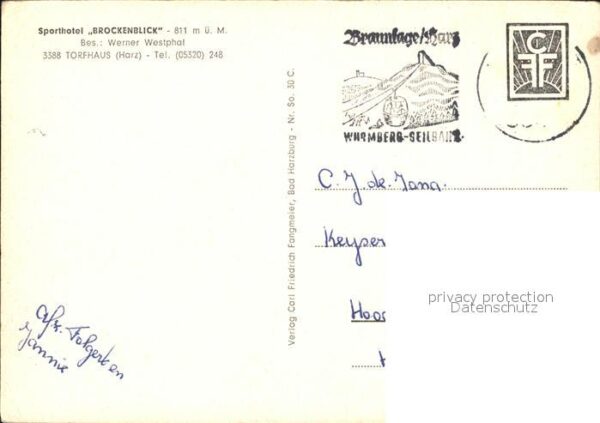 Sporthotel „BROCKENBLICK" - 811 m ü. M.
Bes.: Werner Westphal
3388 TORFHAUS (Harz) - Tel. (05320) 248
Verlag Carl Friedrich Fangmeier, Bad Harzburg - Nr. So. 30 C.
Braunlage/Harz
WURMBERG-SEILBAHN
CFF
C. J. de
Keyser
privacy protection
Datenschutz
Jannie